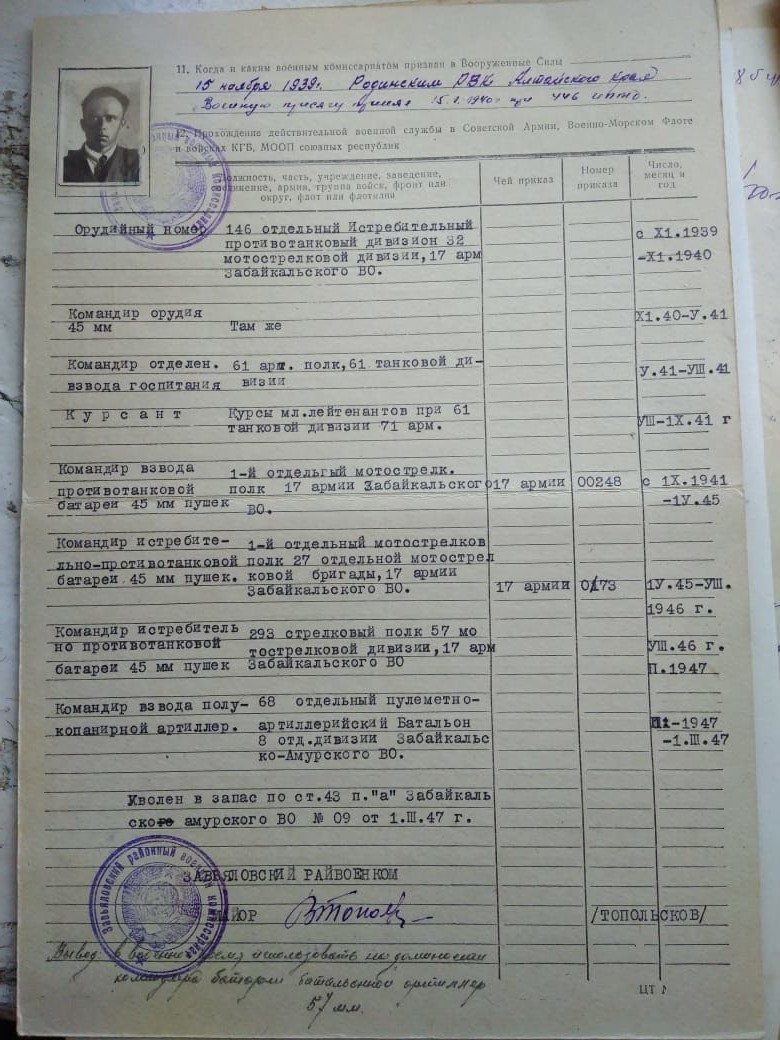 11. Когда и каким военным комиссариатом призван в Вооруженные Силы
15 ноября 1939г. Родинским РВК Алтайского края
Военную присягу принял 15.1.1940г при 446 иптд.
12. Прохождение действительной военной службы в Советской Армии, Военно-Морском Флоте
и войсках КГБ, МООП союзных республик
Должность, часть, учреждение, заведение, соединение, армия, группа войск, фронт или округ, флот или флотилия
Чей приказ
Номер приказа
Число, месяц и год
Орудийный номер 146 отдельный Истребительный
противотанковый дивизион 32 с X1.1939
мотострелковой дивизии,17 арм -X1.1940
Забайкальского ВО.
Командир орудия X1.40-У.41
45 мм Там же
Командир отделен. 61 арт. полк,61 танковой ди- У.41-УШ.41
взвода госпитания визии
Курсант Курсы мл.лейтенантов при 61 УШ-1X.41 г
танковой дивизии 71 арм.
Командир взвода 1-й отдельгый мотострелк.
противотанковой полк 17 армии Забайкальского 17 армии 00248 с 1X.1941
батареи 45 мм пушек ВО. -1У.45
Командир истребите- 1-й отдельный мотострелков
льно-противотанковой полк 27 отдельной мотострел
батареи 45 мм пушек. ковой бригады,17 армии
Забайкальского ВО. 17 армии 0173 1У.45-УШ.
1946 г.
Командир истребитель 293 стрелковый полк 57 мо
но противотанковой тострелковой дивизии,17 арм УШ.46 г.
батареи 45 мм пушек Забайкальского ВО П.1947
Командир взвода полу- 68 отдельный пулеметно-
копанирной артиллер. артиллерийский Батальон -1947
8 отд.дивизии Забайкальс -1.Ш.47
ко-Амурского ВО.
Уволен в запас по ст.43 п."а" Забайкаль
ско амурского ВО № 09 от 1.Ш.47 г.
Завьяловский районный военный комиссариат
ЗАВЬЯЛОВСКИЙ РАЙВОЕНКОМ
МАЙОР /ТОПОЛЬСКОВ/
Вывод: в военное время использовать на должности
командира батареи батальонной артиллер
57 мм.
ЦТ